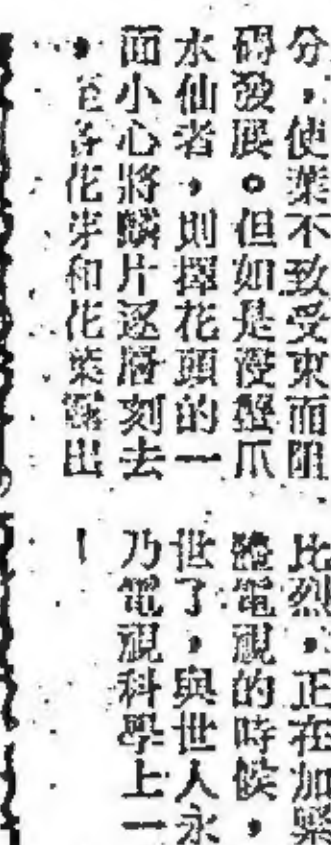 分，使葉不致受束而阻
碍發展。但如是浸蟹爪
水仙者，則擇花頭的一
面小心將鱗片逐層刻去
，至各花芽和花葉露出
比烈，正在加緊
電視的時候，
世了，與世人永
乃電視科學上一
！